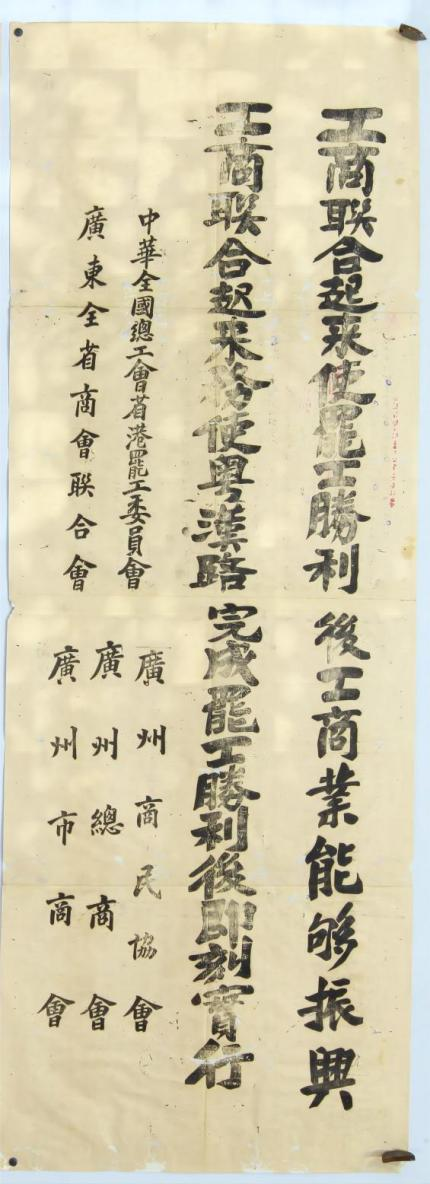 工商联合起来使罷工勝利後工商業能够振興
工商联合起来務使粤漢路完成罷工勝利後即刻實行
中華全國總工會省港罷工委員會
廣東全省商會联合會
廣州商民協會
廣州總商會
廣州市商會